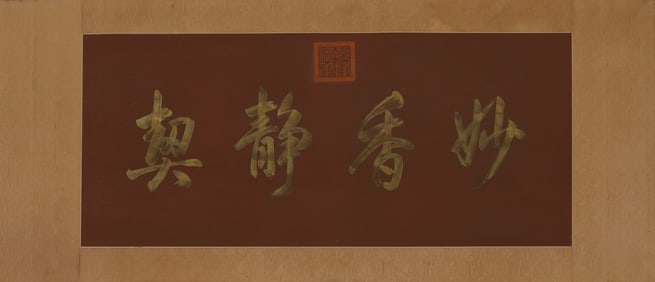 妙香靜契